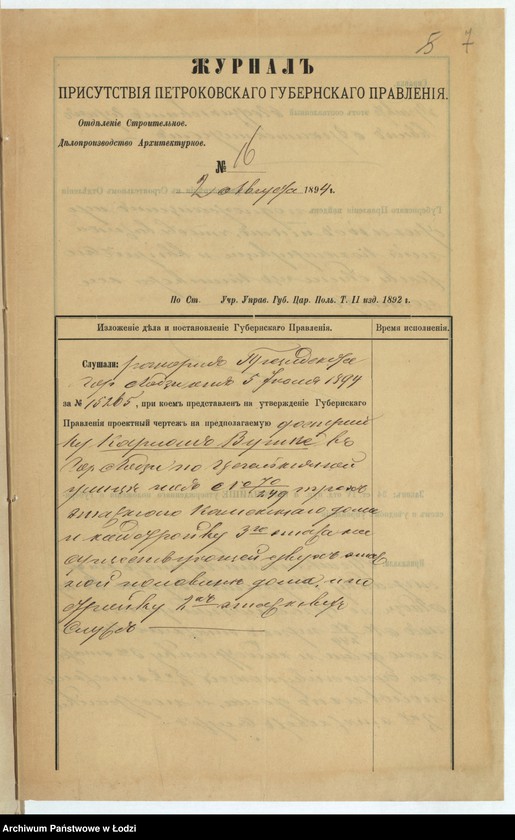 5 7
ЖУРНАЛЪ
ПРИСУТСТВІЯ ПЕТРОКОВСКАГО ГУБЕРНСКАГО ПРАВЛЕНІЯ.
Отдѣленіе Строительное.
Дѣлопроизводство Архитектурное.
№ 16
2 августа 1894 г.
По Ст. Учр. Управ. Губ. Цар. Поль. Т. II изд. 1892 г.
Изложеніе дѣла и постановленіе Губернскаго Правленія.
Время исполненія.
Слушали: рапортъ Президента
гор. Лодзи отъ 5 1894
за № 15265, при коемъ представленъ на утвержденіе Губернскаго
Правленія проектный чертежъ на предполагаемую
Карломъ въ
гор. Лодзи по
улицѣ подъ № 70/249 трехъ
этажнаго каменнаго дома
и надстройку 3го этажа на
существующей двухъ этаж
ной половинѣ дома, и по
стройку 2хъ этажныхъ
службъ
Archiwum Państwowe w Łodzi